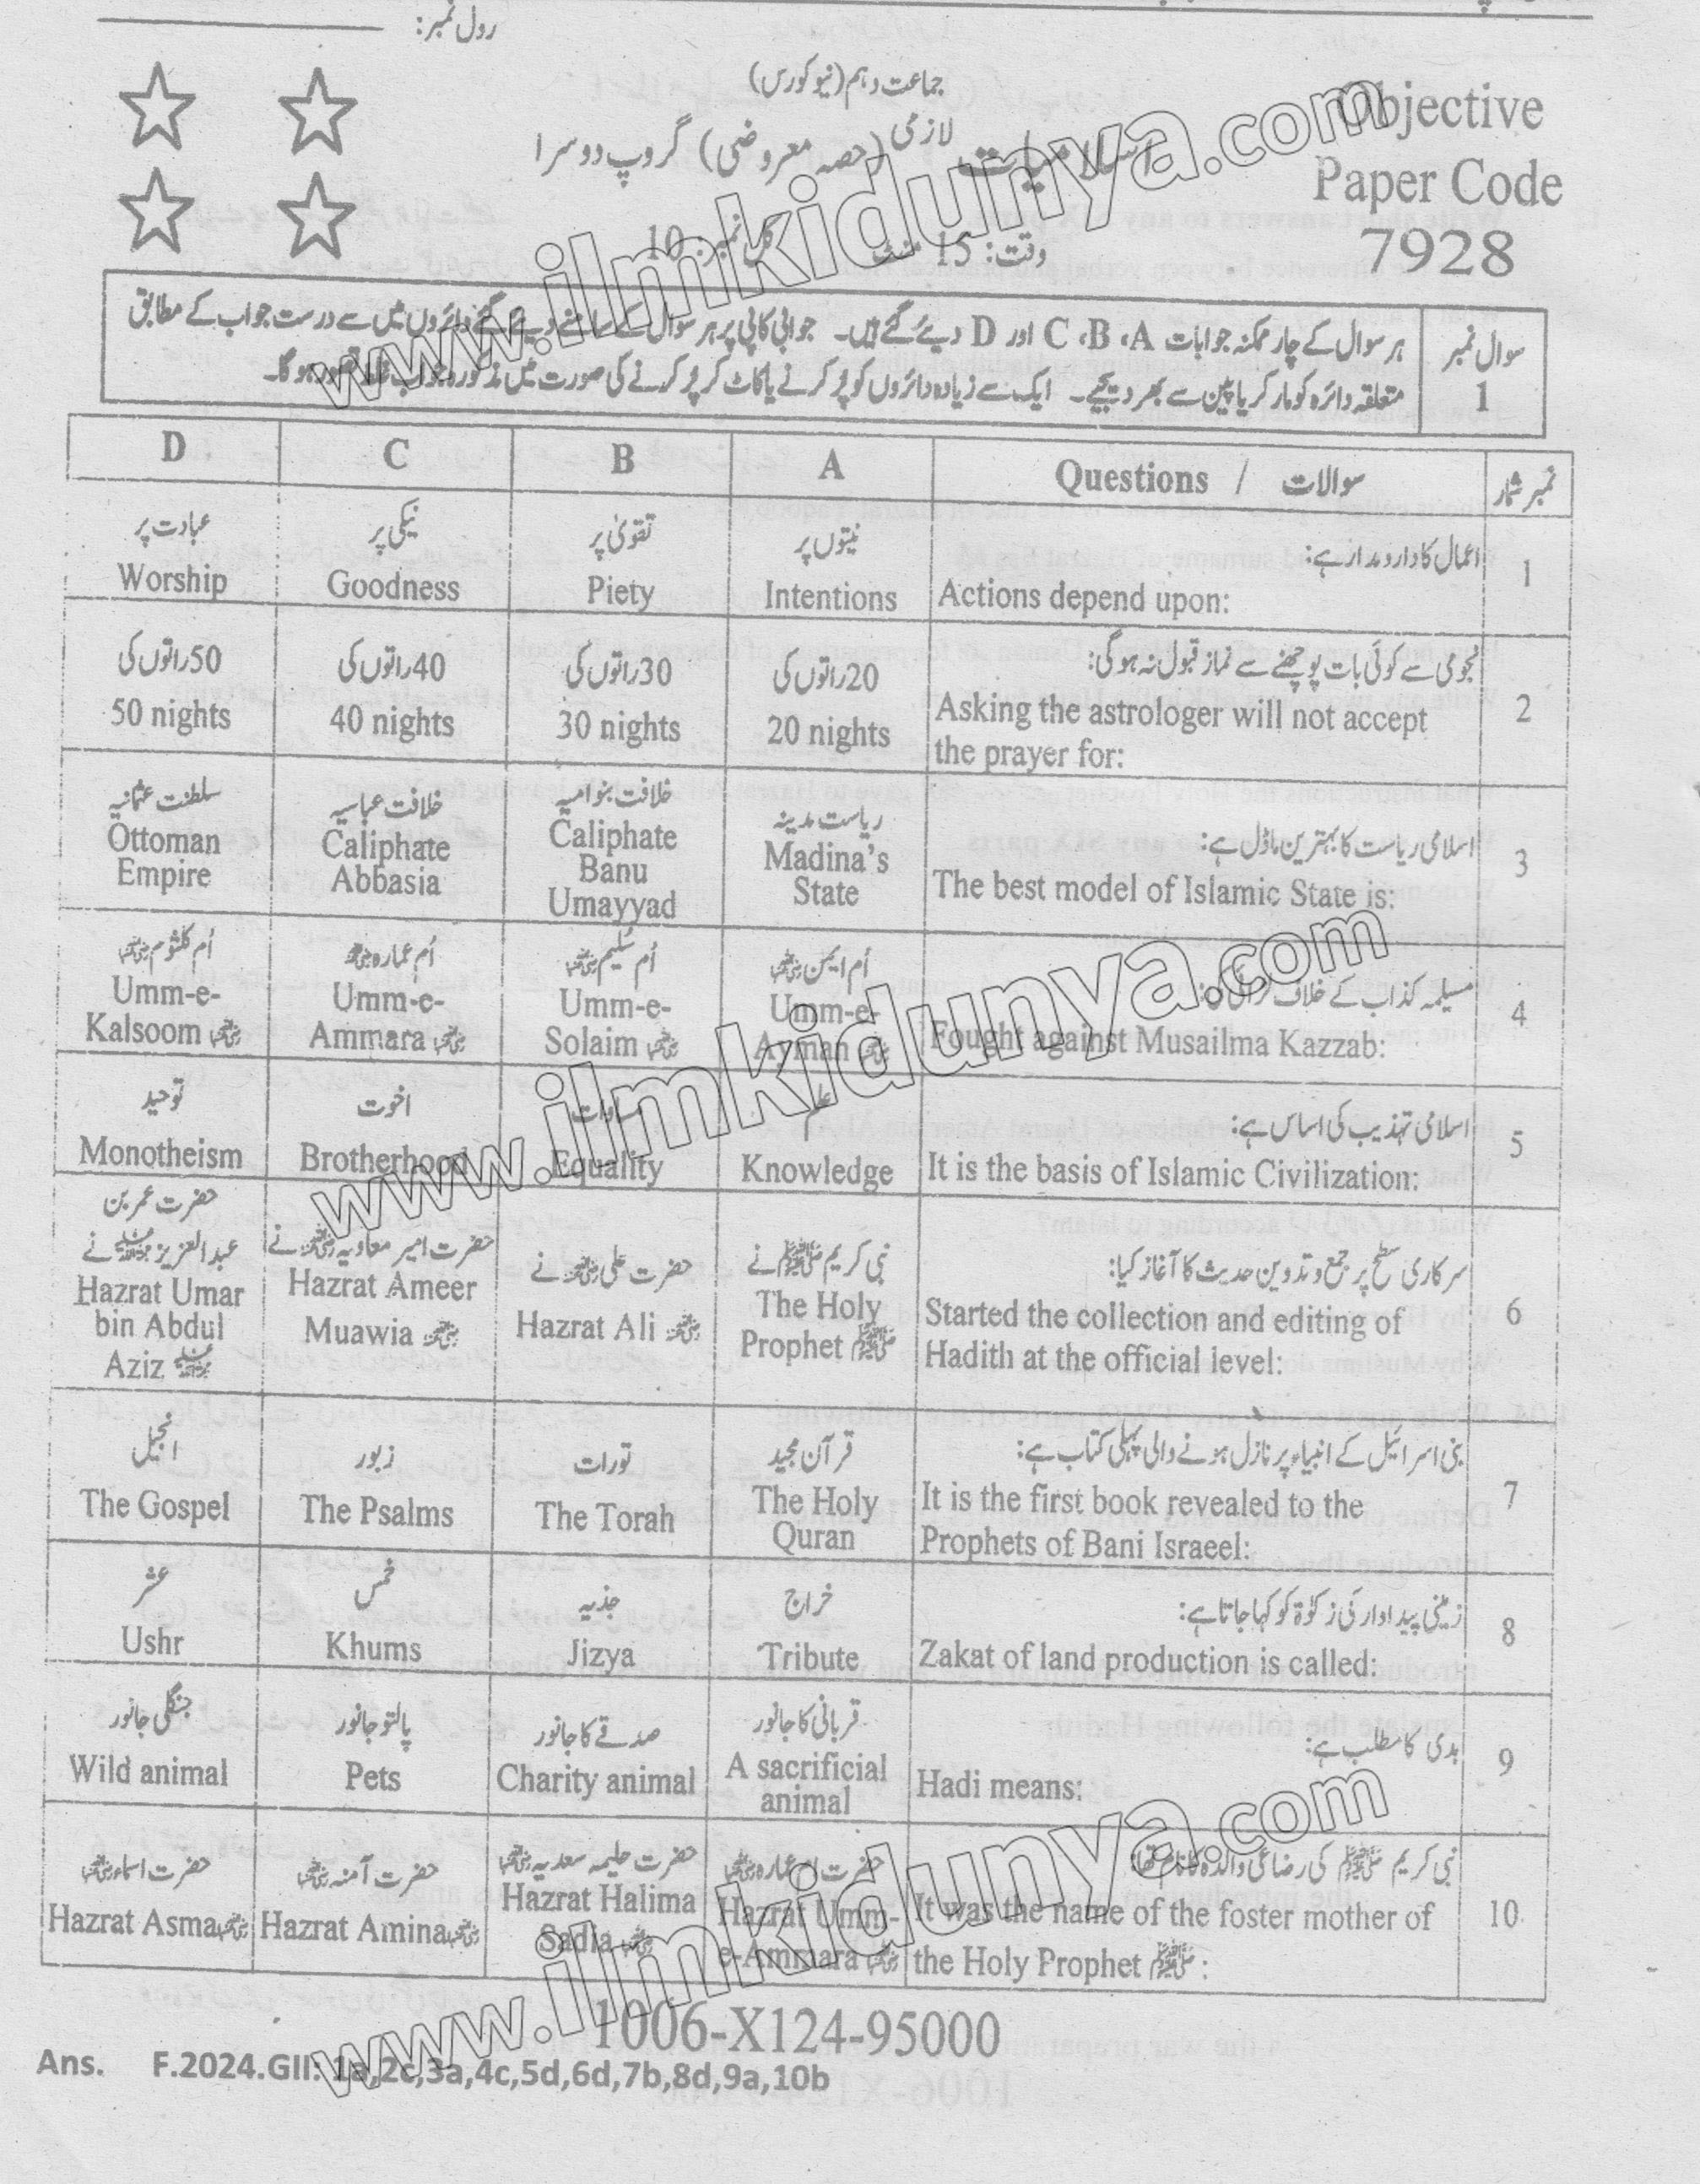 رول نمبر:
جماعت دہم (نیو کورس)
اسلامیات لازمی (حصہ معروضی) گروپ دوسرا
وقت: 15 منٹ کل نمبر: 10
Objective
Paper Code
7928
سوال نمبر 1
ہر سوال کے چار ممکنہ جوابات A ،B ،C اور D دیئے گئے ہیں۔ جوابی کاپی پر ہر سوال کے سامنے دیئے گئے دائروں میں سے درست جواب کے مطابق
متعلقہ دائرہ کو مارکر یا پین سے بھر دیجیے۔ ایک سے زیادہ دائروں کو پُر کرنے یا کاٹ کر پُر کرنے کی صورت میں مذکورہ جواب غلط تصور ہوگا۔
نمبر شمار
Questions / سوالات
A
B
C
D
1
اعمال کا دارومدار ہے:
Actions depend upon:
نیتوں پر
Intentions
تقویٰ پر
Piety
نیکی پر
Goodness
عبادت پر
Worship
2
نجومی سے کوئی بات پوچھنے سے نماز قبول نہ ہوگی:
Asking the astrologer will not accept
the prayer for:
20 راتوں کی
20 nights
30 راتوں کی
30 nights
40 راتوں کی
40 nights
50 راتوں کی
50 nights
3
اسلامی ریاست کا بہترین ماڈل ہے:
The best model of Islamic State is:
ریاست مدینہ
Madina's
State
خلافت بنو امیہ
Caliphate
Banu
Umayyad
خلافت عباسیہ
Caliphate
Abbasia
سلطنت عثمانیہ
Ottoman
Empire
4
مسیلمہ کذاب کے خلاف
Fought against Musailma Kazzab:
اُم ایمن رضی اللہ عنہا
Umm-e-
Ayman رضی اللہ عنہا
اُم سُلیم رضی اللہ عنہا
Umm-e-
Solaim رضی اللہ عنہا
اُم عمارہ رضی اللہ عنہا
Umm-e-
Ammara رضی اللہ عنہا
اُم کلثوم رضی اللہ عنہا
Umm-e-
Kalsoom رضی اللہ عنہا
5
اسلامی تہذیب کی اساس ہے:
It is the basis of Islamic Civilization:
علم
Knowledge
مساوات
Equality
اخوت
Brotherhood
توحید
Monotheism
6
سرکاری سطح پر جمع و تدوین حدیث کا آغاز کیا:
Started the collection and editing of
Hadith at the official level:
نبی کریم ﷺ نے
The Holy
Prophet ﷺ
حضرت علی رضی اللہ عنہ نے
Hazrat Ali رضی اللہ عنہ
حضرت امیر معاویہ رضی اللہ عنہ نے
Hazrat Ameer
Muawia رضی اللہ عنہ
حضرت عمر بن
عبدالعزیز رحمۃ اللہ علیہ نے
Hazrat Umar
bin Abdul
Aziz رحمۃ اللہ علیہ
7
بنی اسرائیل کے انبیاء پر نازل ہونے والی پہلی کتاب ہے:
It is the first book revealed to the
Prophets of Bani Israeel:
قرآن مجید
The Holy
Quran
تورات
The Torah
زبور
The Psalms
انجیل
The Gospel
8
زمینی پیداوار کی زکوٰۃ کو کہا جاتا ہے:
Zakat of land production is called:
خراج
Tribute
جذیہ
Jizya
خمس
Khums
عشر
Ushr
9
ہدی کا مطلب ہے:
Hadi means:
قربانی کا جانور
A sacrificial
animal
صدقے کا جانور
Charity animal
پالتو جانور
Pets
جنگلی جانور
Wild animal
10
نبی کریم ﷺ کی رضاعی والدہ کا نام تھا:
It was the name of the foster mother of
the Holy Prophet ﷺ :
حضرت ام عمارہ رضی اللہ عنہا
Hazrat Umm-
e-Ammara رضی اللہ عنہا
حضرت حلیمہ سعدیہ رضی اللہ عنہا
Hazrat Halima
Sadia رضی اللہ عنہا
حضرت آمنہ رضی اللہ عنہا
Hazrat Amina رضی اللہ عنہا
حضرت اسماء رضی اللہ عنہا
Hazrat Asma رضی اللہ عنہا
1006-X124-95000
Ans. F.2024.GII: 1a,2c,3a,4c,5d,6d,7b,8d,9a,10b
www.ilmkidunya.com
www.ilmkidunya.com
www.ilmkidunya.com